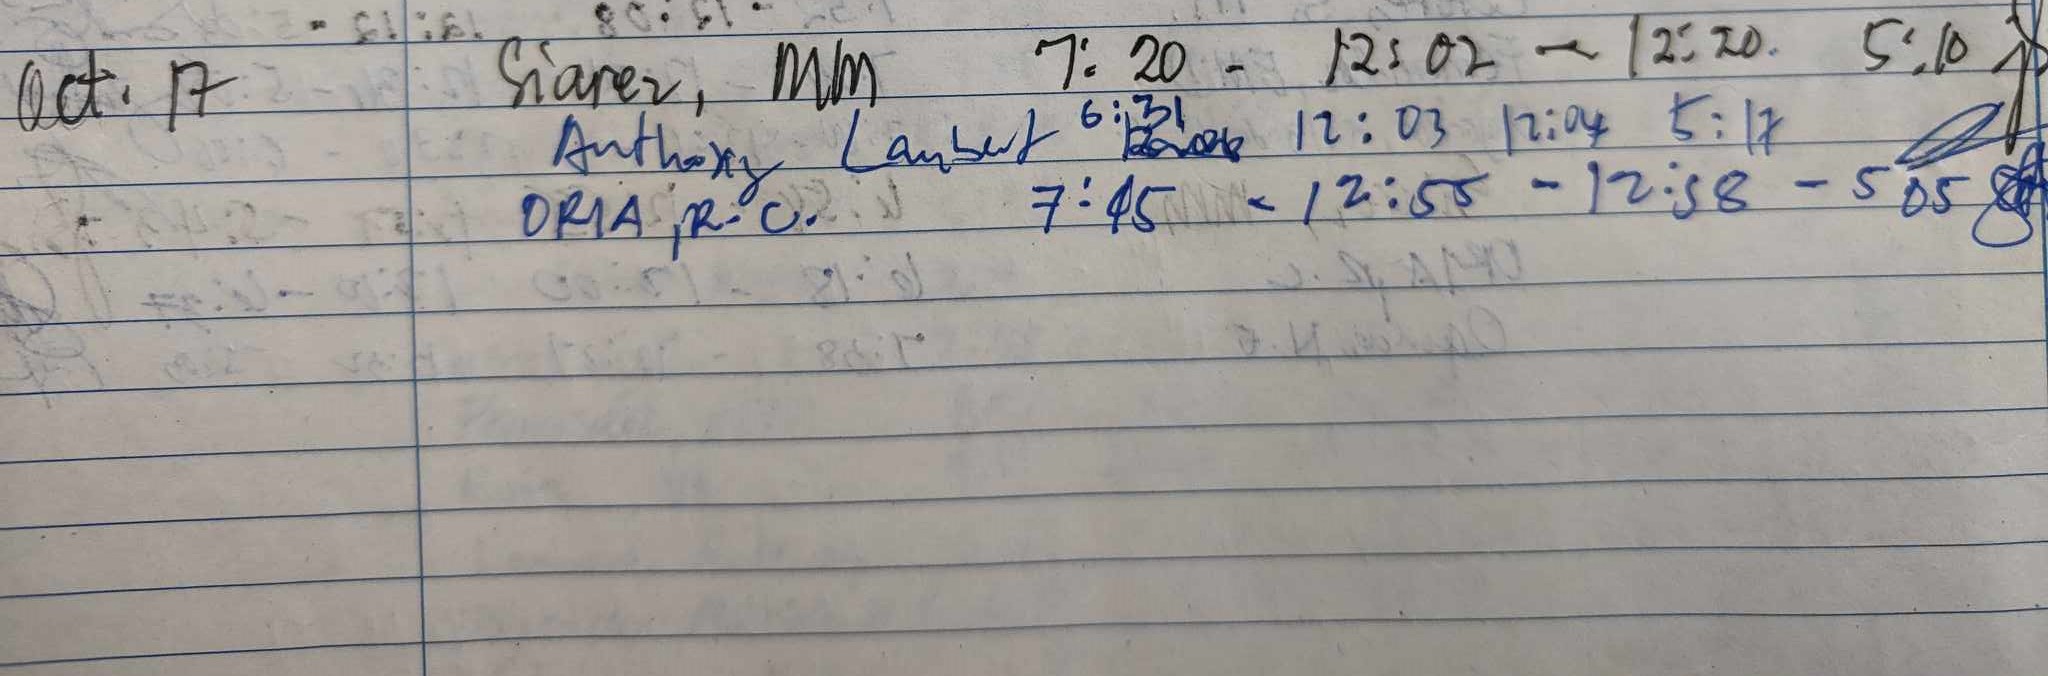 Oct. 17 Siarez, MM 7:20 - 12:02 - 12:20. 5:10
Anthony Lambert 6:31 12:03 12:04 5:17
ORIA, R-C. 7:45 - 12:55 - 12:58 - 5 05